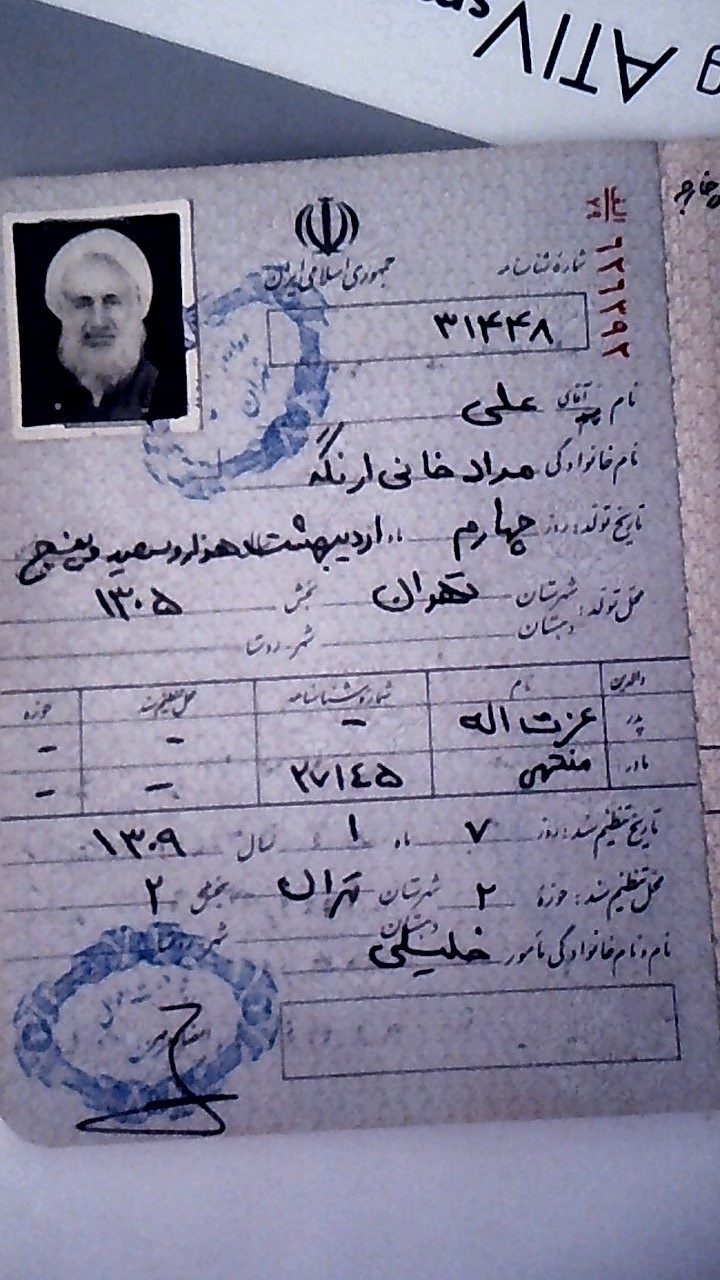 ATIV
جمهوری اسلامی ایران
شماره شناسنامه
۳۱۴۴۸
الف
۲۹
۶۲۶۲۹۲
نام آقای علی
نام خانوادگی مداد خانی ارنگه
تاریخ تولد: روز چهارم ماه اردیبهشت هزار و سیصد و پنج
۱۳۰۵
محل تولد: شهرستان تهران بخش
دهستان شهر-روستا
والدین نام شماره شناسنامه محل تنظیم سند حوزه
پدر عزت اله - - -
مادر منتهی ۲۷۱۴۵ - -
تاریخ تنظیم سند: روز ۷ ماه ۱ سال ۱۳۰۹
محل تنظیم سند: حوزه ۲ شهرستان تهران بخش ۲
دهستان شهر-روستا
نام و نام خانوادگی مامور خلیلی